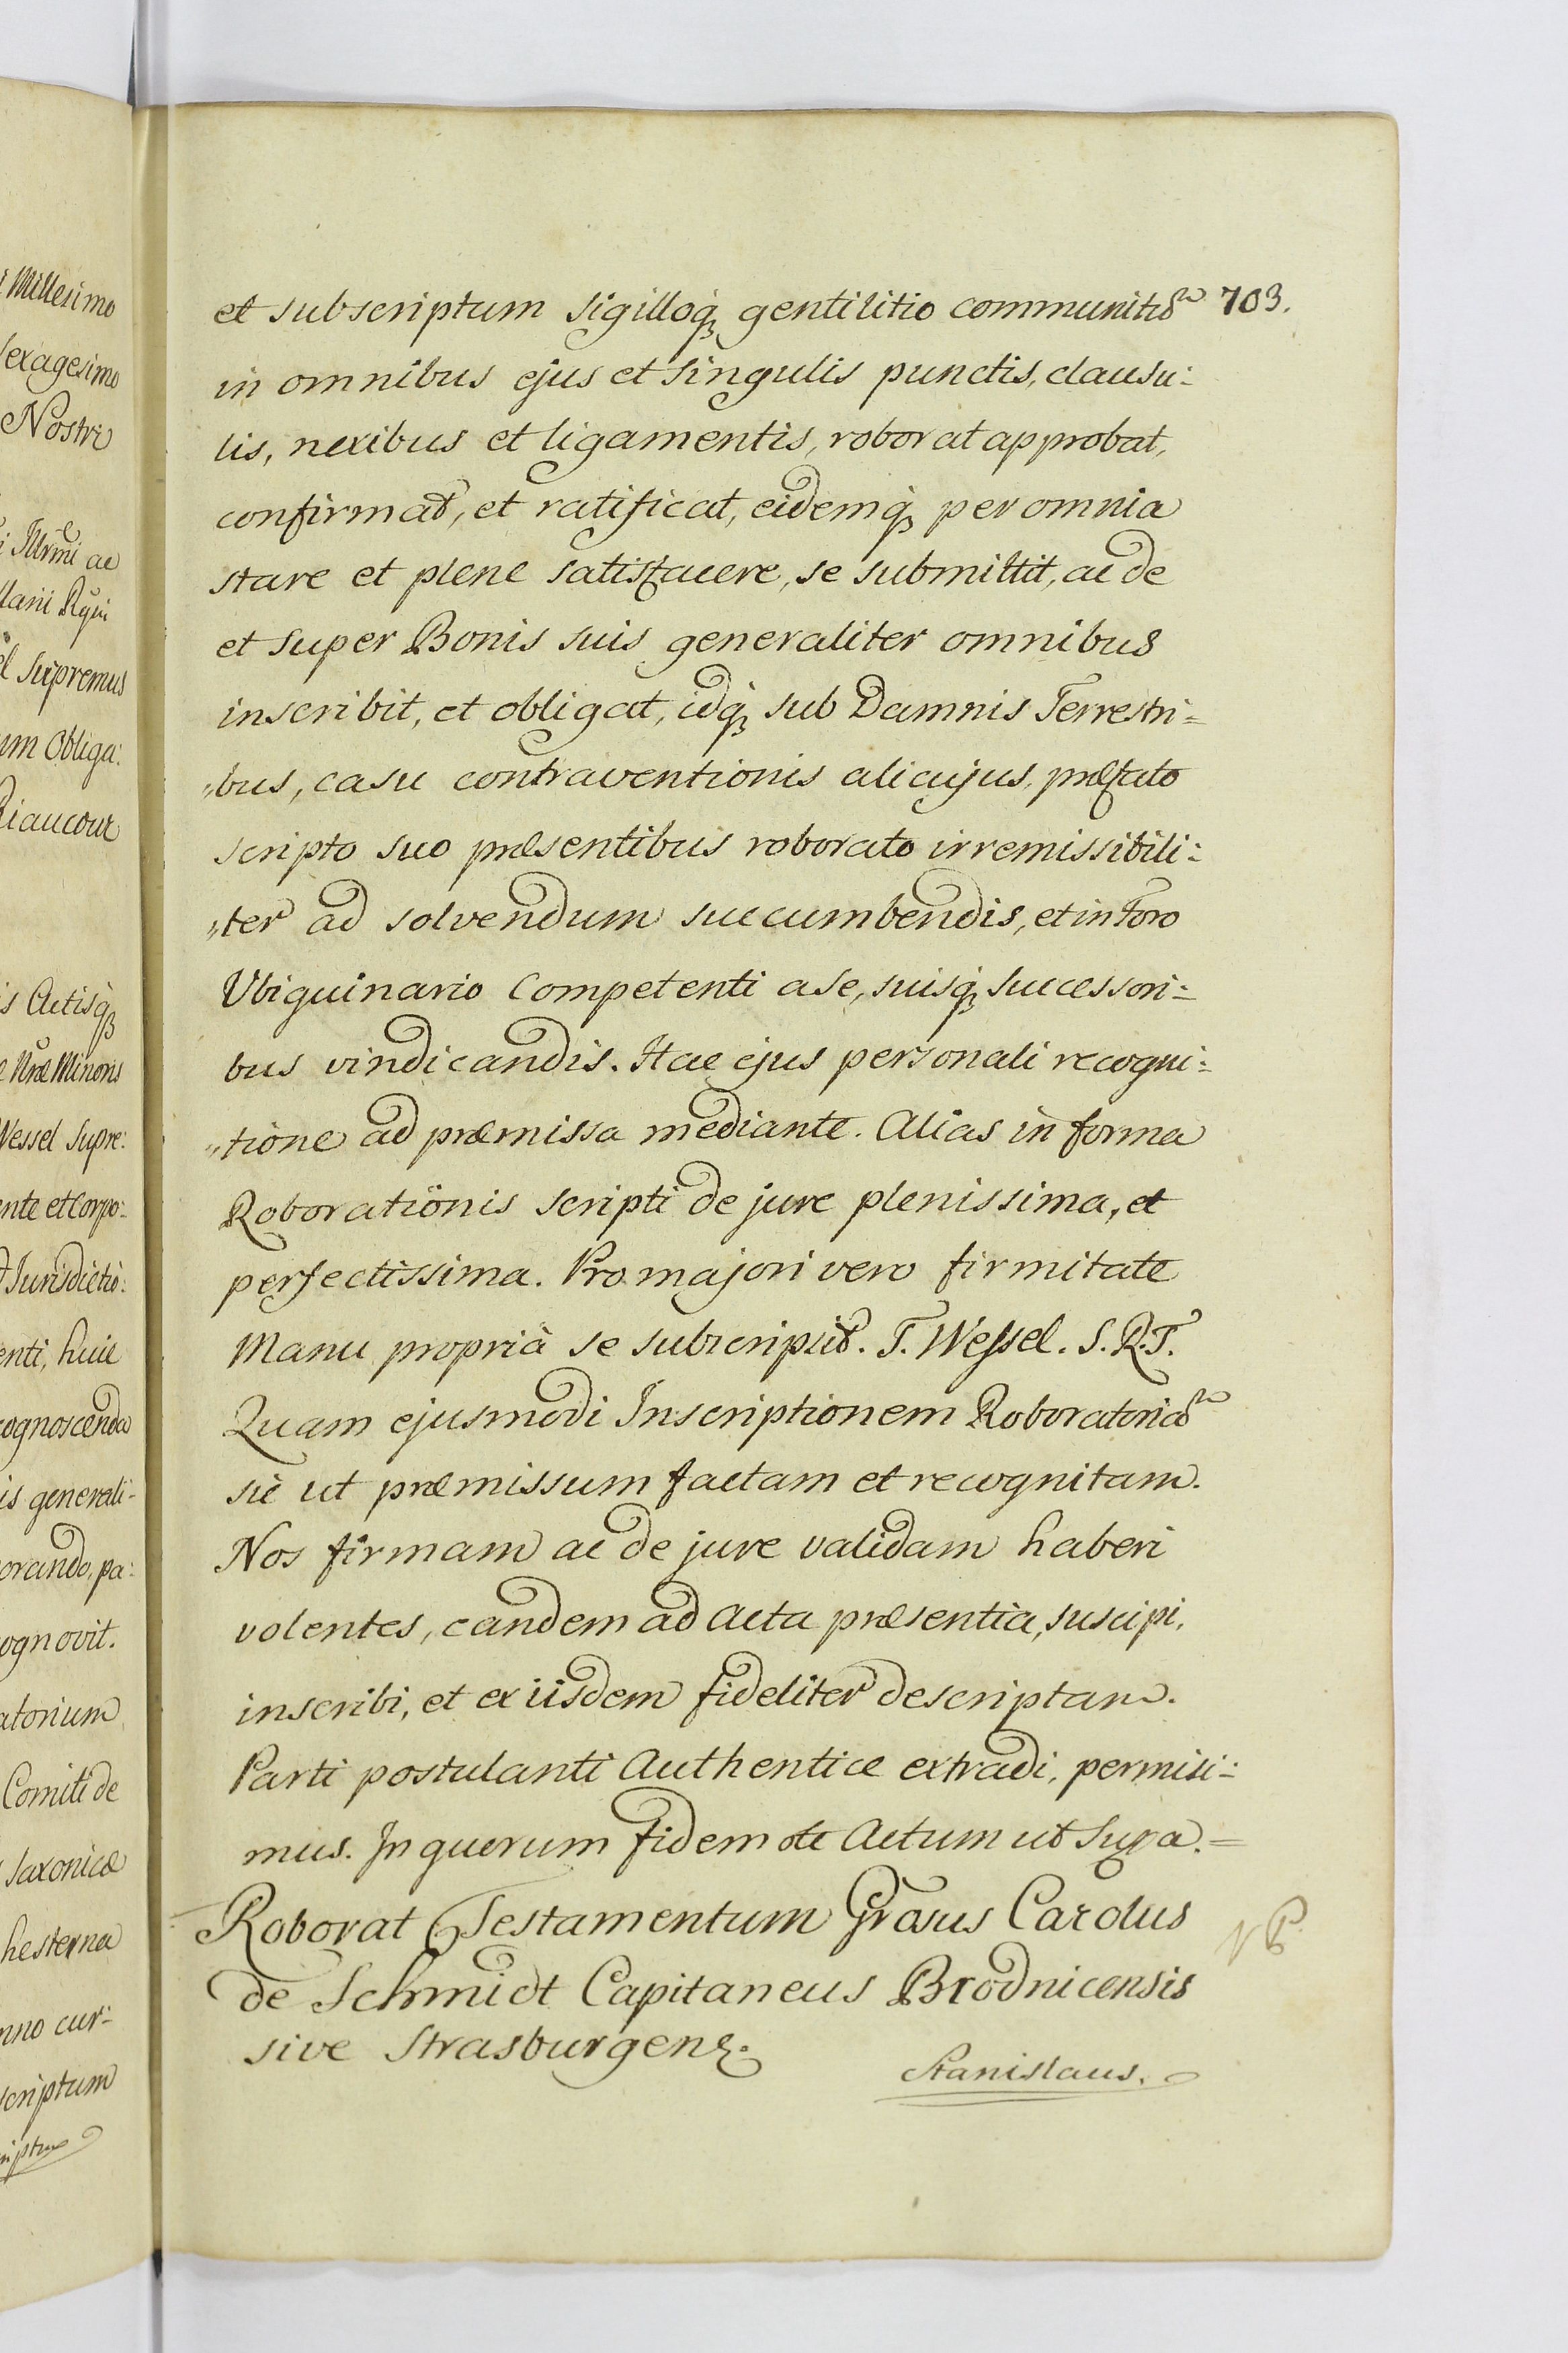 703.
et subscriptum sigilloq́ꝫ gentilitio communitũ
in omnibus ejus et singulis punctis, clausu:
lis, nexibus et ligamentis, roborat approbat,
confirmat, et ratificat, eidemq́ꝫ per omnia
stare et plene satisfacere, se submittit, ac de
et super Bonis suis generaliter omnibus
inscribit, et obligat, idq́ꝫ sub Damnis Terrestri=
„bus, casu contraventionis alicujus, præfato
scripto suo præsentibus roborato irremissibili:
„ter ad solvendum succumbendis, et in Foro
Ubiquinario Competenti a se, suisq́ꝫ successori:
bus vindicandis. Hac ejus personali recogni:
„tione ad præmissa mediante. Alias in forma
Roborationis scripti de jure plenissima, et
perfectissima. Pro majori vero firmitate
Manu proprià se subscripsit. T. Wessel. S. R. T.
Quam ejusmodi Inscriptionem Roboratoriã
sic ut præmissum factam et recognitam.
Nos firmam ac de jure validam haberi
volentes, eandem ad Acta præsentia, suscipi,
inscribi, et ex iisdem fideliter descriptam.
Parti postulanti Authentice extradi, permisi:
mus. In quorum fidem etc Actum ut Supra. =
Roborat Testamentum Grosus Carolus
de Schmidt Capitaneus Brodnicensis
sive Strasburgenꝫ.
Stanislaus.
i Millesimo
Sexagesimo
Nostri
i Illrmi ac
llani Rgni
el Supremus
um Obliga:
Riaucour
is Actisq́ꝫ
Nræ Minoris
Wessel Supre:
ente et Corpo:
Jurisdictio:
enti, huic
cognoscendo
is generali-
orando, pa:
ognovit.
atorium
Comiti de
Saxonicæ
hesterna
nno cur:
scriptum